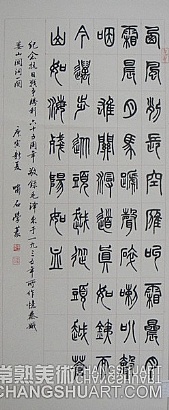 西風烈長空雁叫霜晨月
霜晨月馬蹄聲碎喇叭聲
咽雄關漫道真如鐵而
今邁步從頭越從頭越蒼
山如海殘陽如血
紀念抗日戰爭勝利六十五周年敬錄毛澤東于一九三五年所作憶秦娥
婁山關詞一闋
庚寅 夏 石學篆
常熟美術